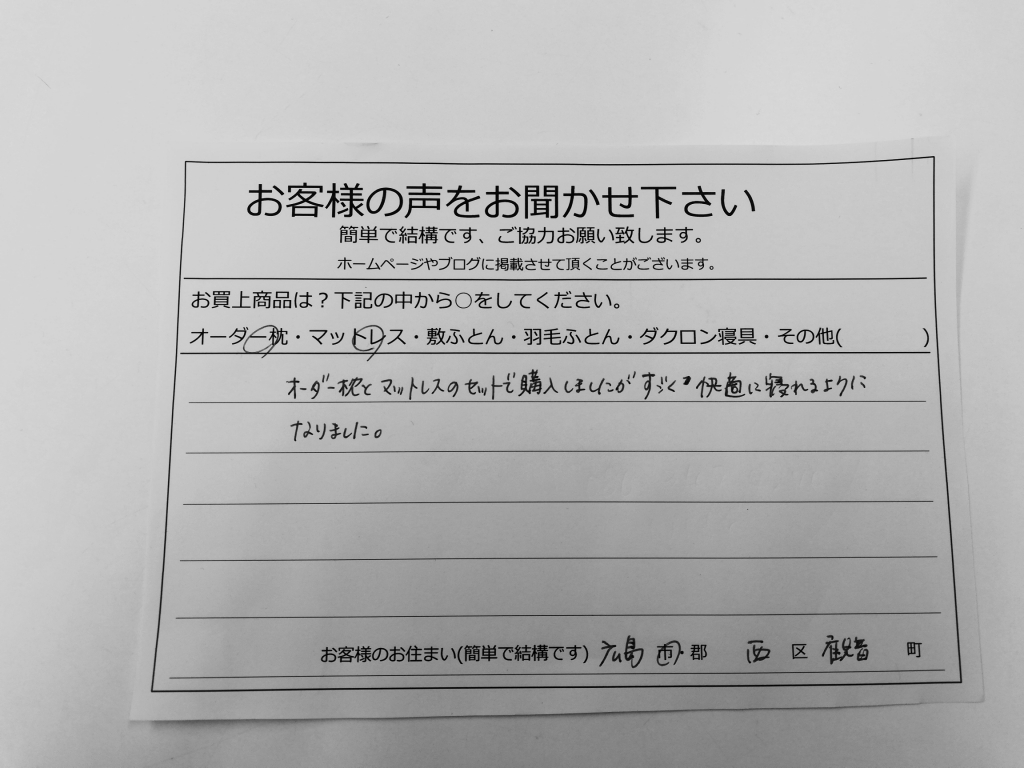 お客様の声をお聞かせ下さい
簡単で結構です、ご協力お願い致します。
ホームページやブログに掲載させて頂くことがございます。
お買上商品は？下記の中から○をしてください。
オーダー枕・マットレス・敷ふとん・羽毛ふとん・ダクロン寝具・その他(　　　　)
オーダー枕とマットレスのセットで購入しましたがすごく快適に寝れるように
なりました。
お客様のお住まい(簡単で結構です) 広島 郡 西 区 観音 町